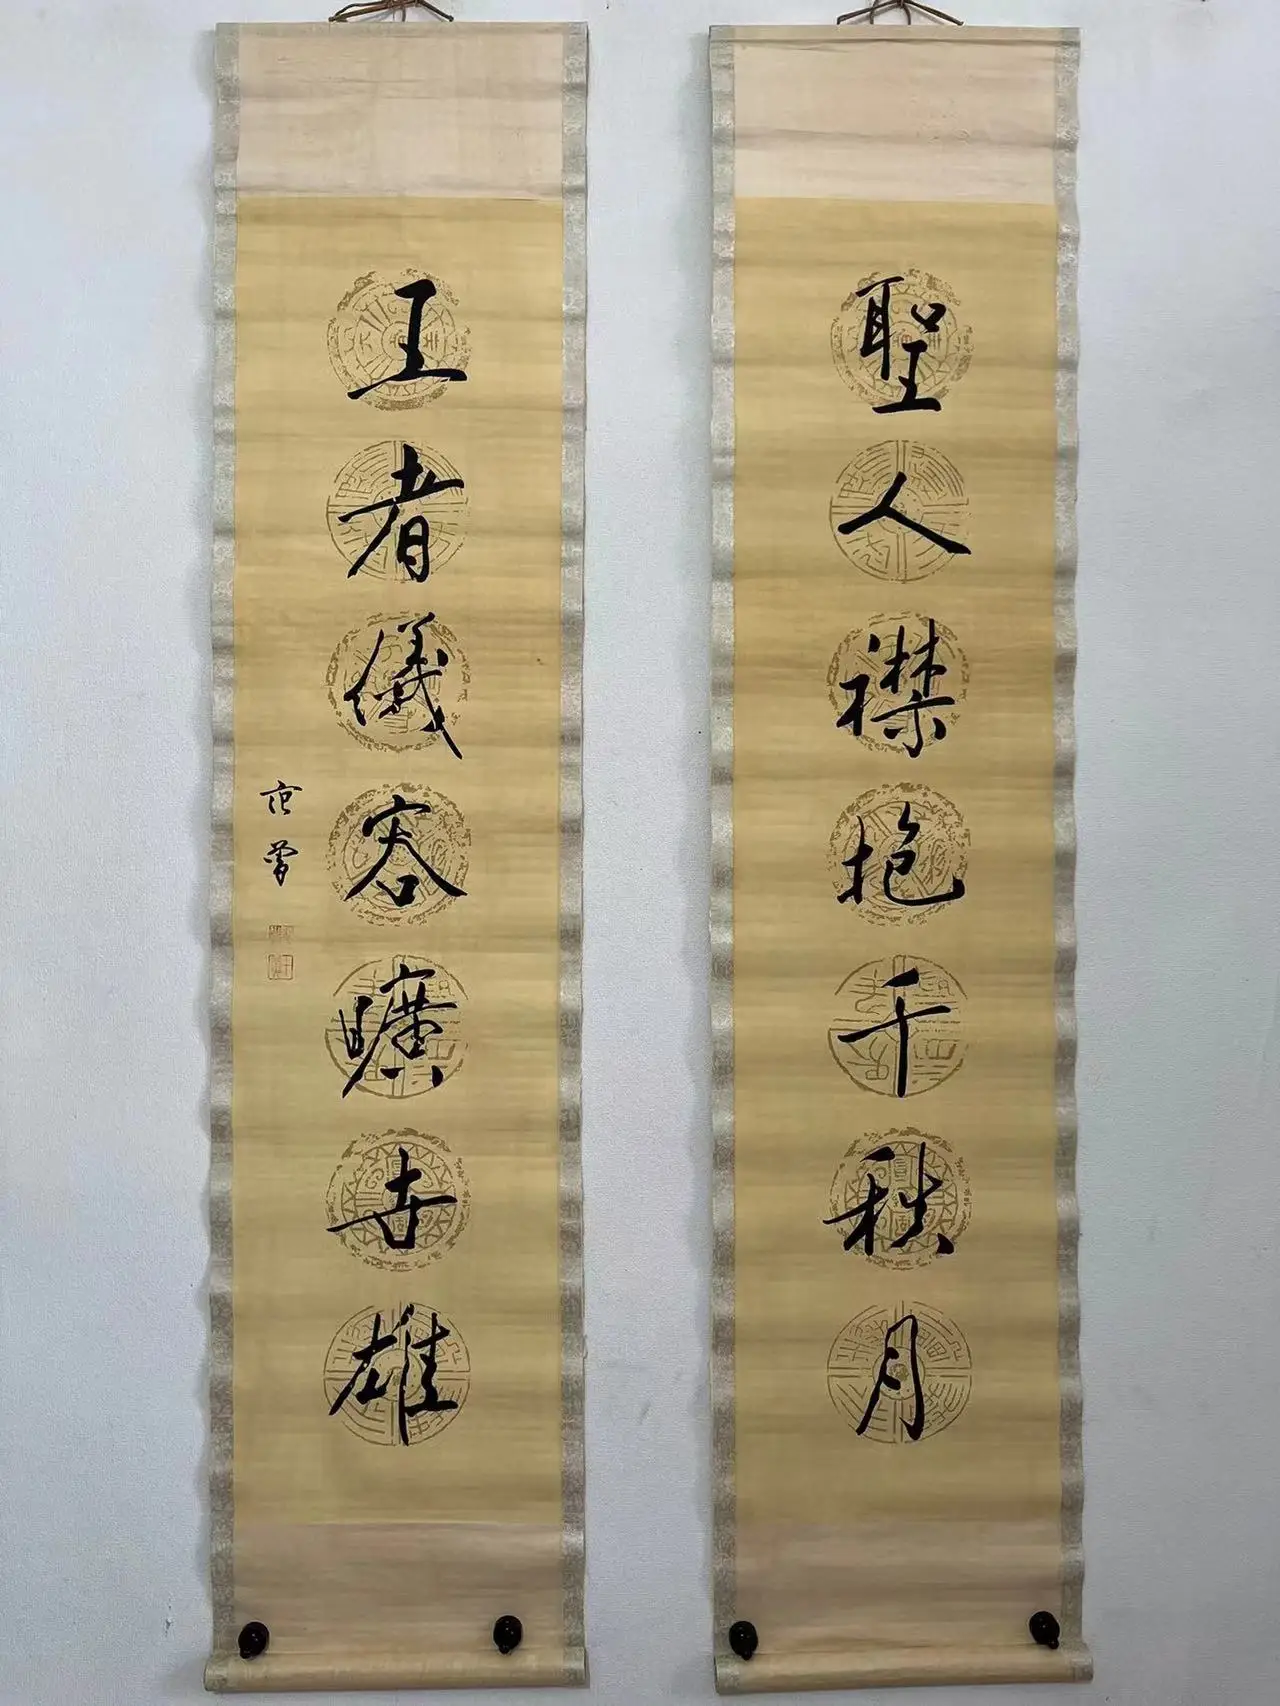 聖人襟抱千秋月
王者儀容曠古雄
范曾